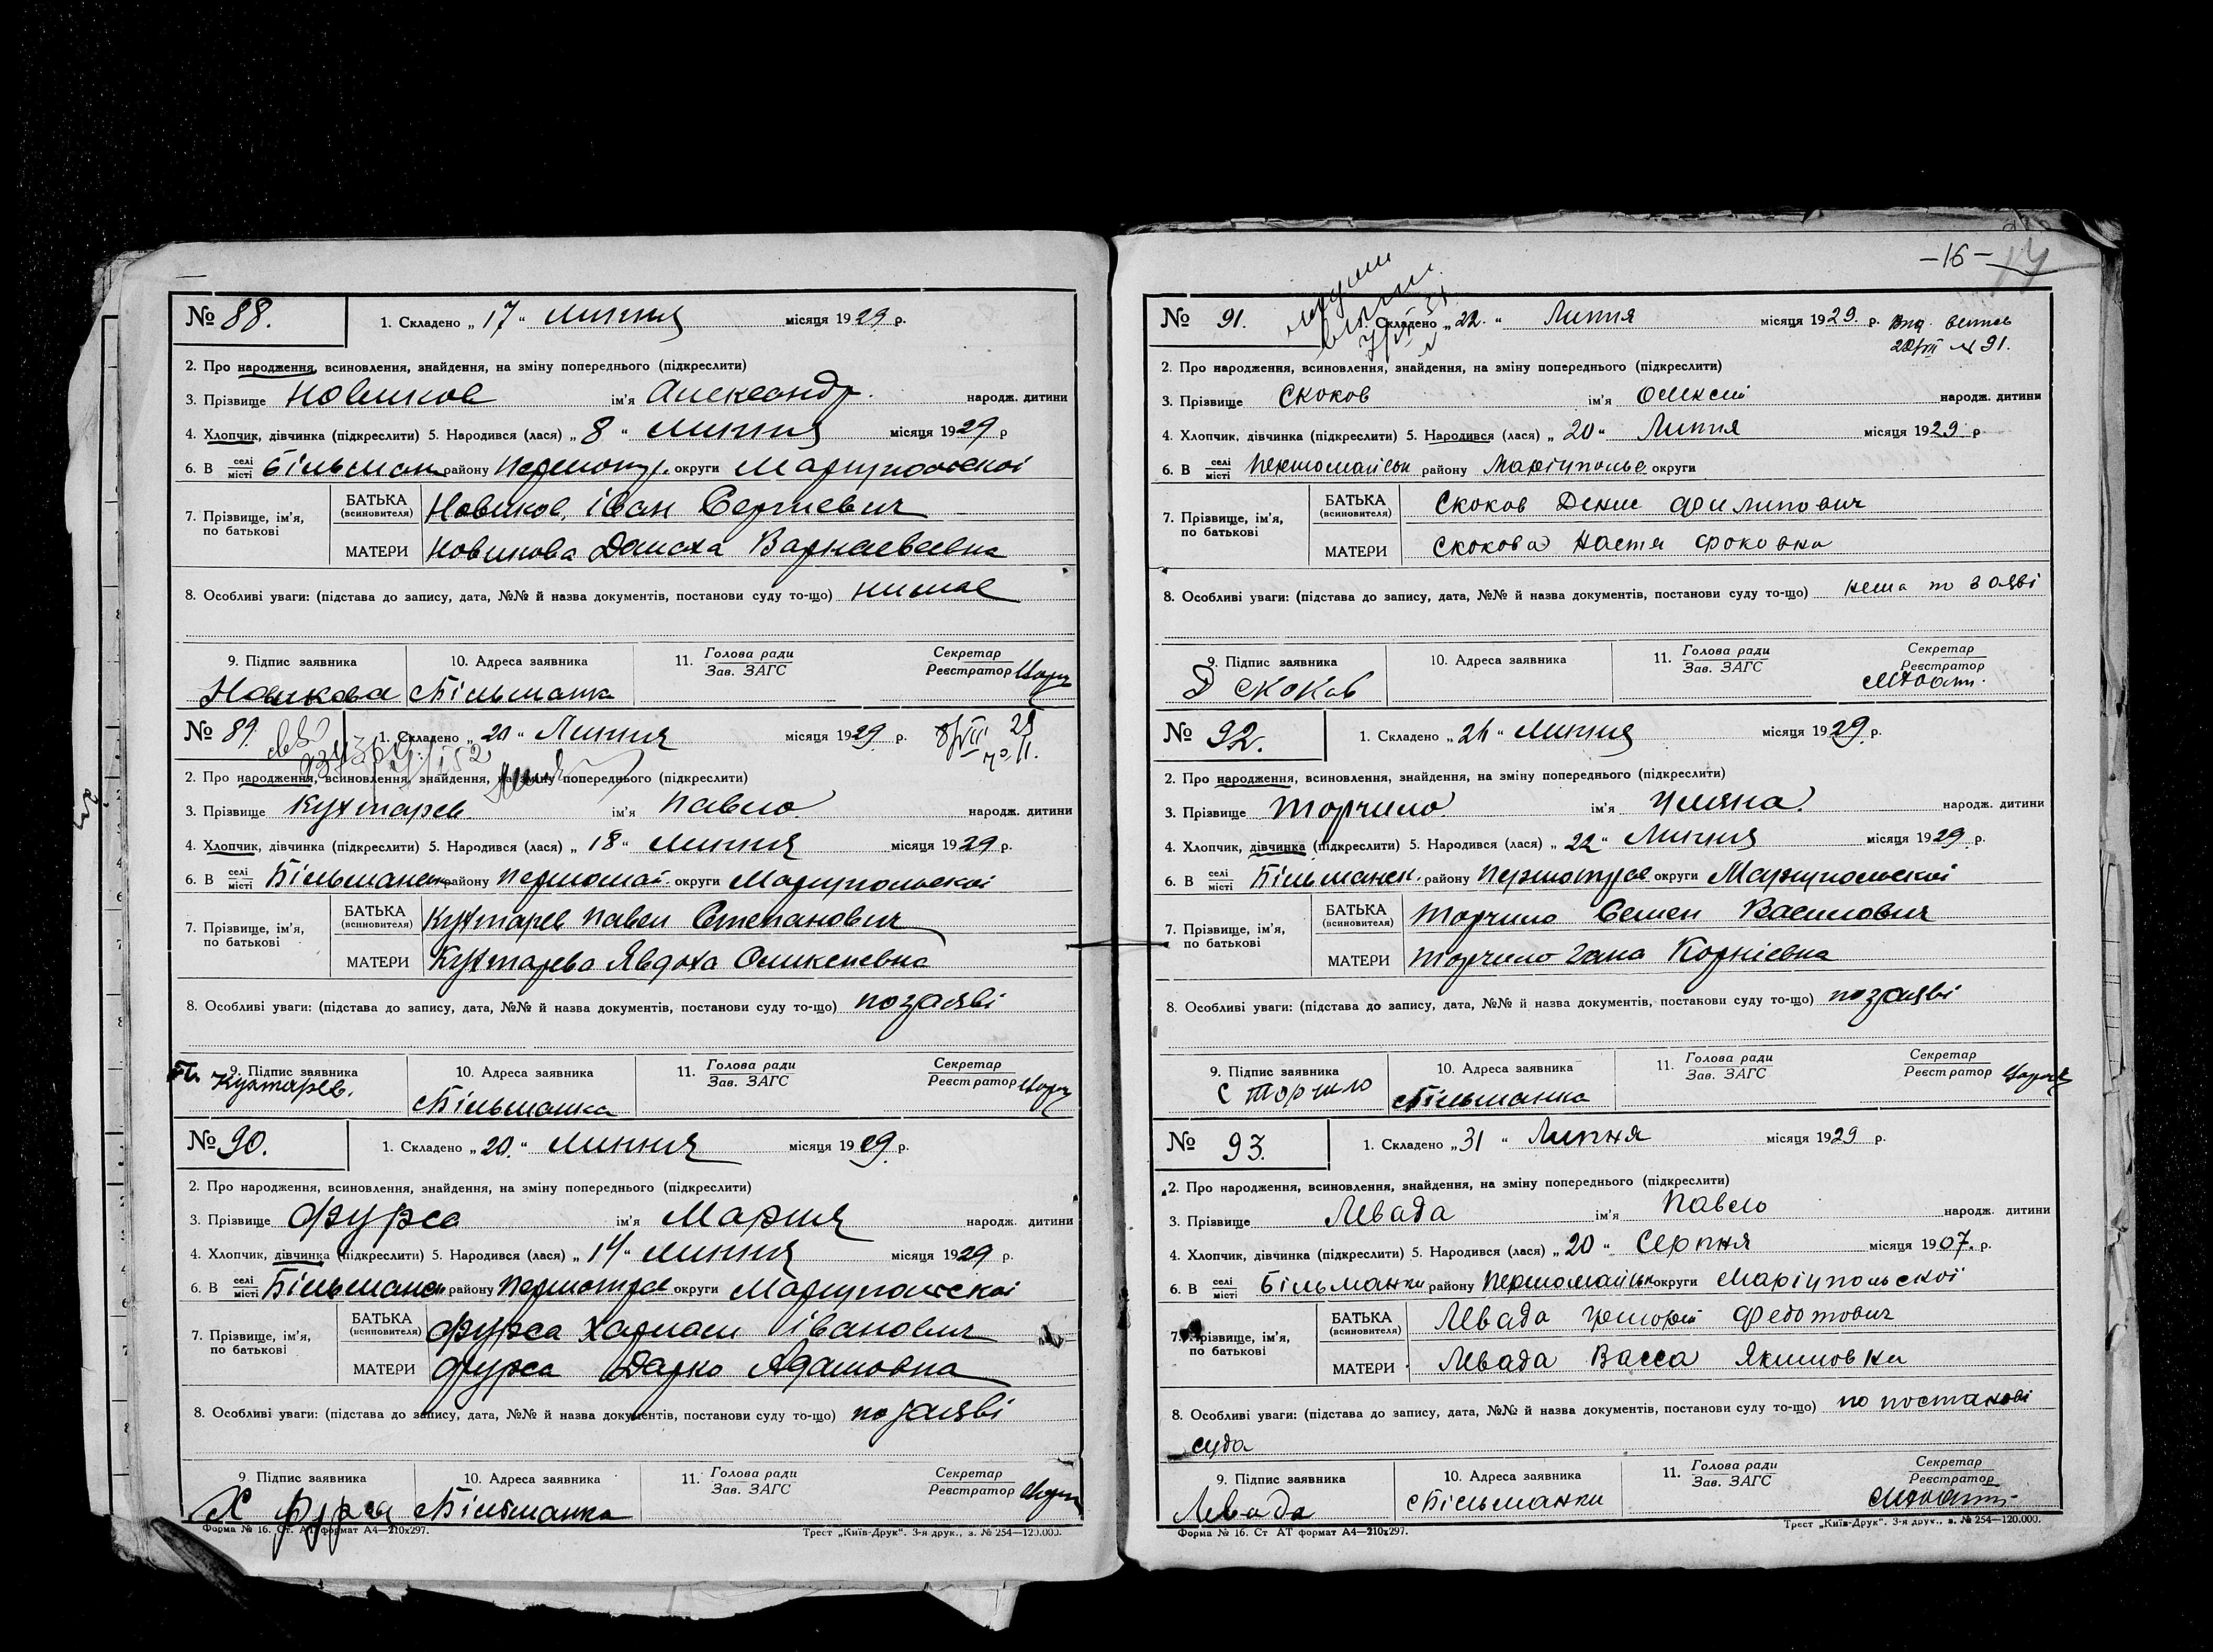 № 88.
1. Складено „17“ липня місяця 1929 р.
2. Про народження, всиновлення, знайдення, на зміну попереднього (підкреслити)
3. Прізвище Новиков ім'я Александр. народж. дитини
4. Хлопчик, дівчинка (підкреслити) 5. Народився (лася) „8“ липня місяця 1929 р
6. В селі місті Більман району округи Маріупольскоі
7. Прізвище, ім'я, по батькові
БАТЬКА (всиновителя) Новиков Іван Сергиевич
МАТЕРИ Новикова
8. Особливі уваги: (підстава до запису, дата, №№ й назва документів, постанови суду то-що) нимае
9. Підпис заявника 10. Адреса заявника 11. Голова ради Зав. ЗАГС Секретар Реєстратор
Новикова Більманка
№ 89.
1. Складено „20“ Липня місяця 1929 р.
2. Про народження, всиновлення, знайдення, на зміну попереднього (підкреслити)
3. Прізвище Кухтарев ім'я Павло народж. дитини
4. Хлопчик, дівчинка (підкреслити) 5. Народився (лася) „18“ липня місяця 1929 р.
6. В селі місті району Первомай. округи Маріупольскоі
7. Прізвище, ім'я, по батькові
БАТЬКА (всиновителя) Кухтарев Павел Степанович
МАТЕРИ Кухтарева Явдоха
8. Особливі уваги: (підстава до запису, дата, №№ й назва документів, постанови суду то-що) по заяві
9. Підпис заявника 10. Адреса заявника 11. Голова ради Зав. ЗАГС Секретар Реєстратор
Кухтарев. Більманка
№ 90.
1. Складено „20.“ липня місяця 1929 р.
2. Про народження, всиновлення, знайдення, на зміну попереднього (підкреслити)
3. Прізвище Фурса ім'я Мария народж. дитини
4. Хлопчик, дівчинка (підкреслити) 5. Народився (лася) „14“ липня місяця 1929 р.
6. В селі місті району округи Маріупольскоі
7. Прізвище, ім'я, по батькові
БАТЬКА (всиновителя) Фурса Іванович
МАТЕРИ Фурса Дарко Адамовна
8. Особливі уваги: (підстава до запису, дата, №№ й назва документів, постанови суду то-що) по заяві
9. Підпис заявника 10. Адреса заявника 11. Голова ради Зав. ЗАГС Секретар Реєстратор
Х Фурса Більманка
Форма № 16. Ст. АТ формат А4—210х297. Трест „Київ-Друк“. 3-я друк., з. № 254—120.000.
–16–
№ 91.
Складено „22.“ Липня місяця 1929. р.
№ 91.
2. Про народження, всиновлення, знайдення, на зміну попереднього (підкреслити)
3. Прізвище Скоков ім'я Олексій народж. дитини
4. Хлопчик, дівчинка (підкреслити) 5. Народився (лася) „20“ Липня місяця 1929 р
6. В селі місті району округи
7. Прізвище, ім'я, по батькові
БАТЬКА (всиновителя) Скоков Денис Филипович
МАТЕРИ Скокова Настя Фоковна
8. Особливі уваги: (підстава до запису, дата, №№ й назва документів, постанови суду то-що) заяві
9. Підпис заявника 10. Адреса заявника 11. Голова ради Зав. ЗАГС Секретар Реєстратор
Д Скоков
№ 92.
1. Складено „24“ липня місяця 1929. р.
2. Про народження, всиновлення, знайдення, на зміну попереднього (підкреслити)
3. Прізвище Торчило ім'я Уляна народж. дитини
4. Хлопчик, дівчинка (підкреслити) 5. Народився (лася) „22“ Липня місяця 1929 р.
6. В селі місті Більманск. району округи Маріупольскоі
7. Прізвище, ім'я, по батькові
БАТЬКА (всиновителя) Торчило Семен Василович
МАТЕРИ Торчило Гана Корніевна
8. Особливі уваги: (підстава до запису, дата, №№ й назва документів, постанови суду то-що) по заяві
9. Підпис заявника 10. Адреса заявника 11. Голова ради Зав. ЗАГС Секретар Реєстратор
С Торчило Більманка
№ 93.
1. Складено „31“ Липня місяця 1929 р.
2. Про народження, всиновлення, знайдення, на зміну попереднього (підкреслити)
3. Прізвище Левада ім'я Павло народж. дитини
4. Хлопчик, дівчинка (підкреслити) 5. Народився (лася) „20“ Серпня місяця 1907. р.
6. В селі місті Більманки району Первомайськ округи Маріупольскоі
7. Прізвище, ім'я, по батькові
БАТЬКА (всиновителя) Левада Федотович
МАТЕРИ Левада Васса Якимовна
8. Особливі уваги: (підстава до запису, дата, №№ й назва документів, постанови суду то-що) по постанові
суда
9. Підпис заявника 10. Адреса заявника 11. Голова ради Зав. ЗАГС Секретар Реєстратор
Левада Більманки
Форма № 16. Ст АТ формат А4—210х297. Трест „Київ-Друк“. 3-я друк., з. № 254—120.000.